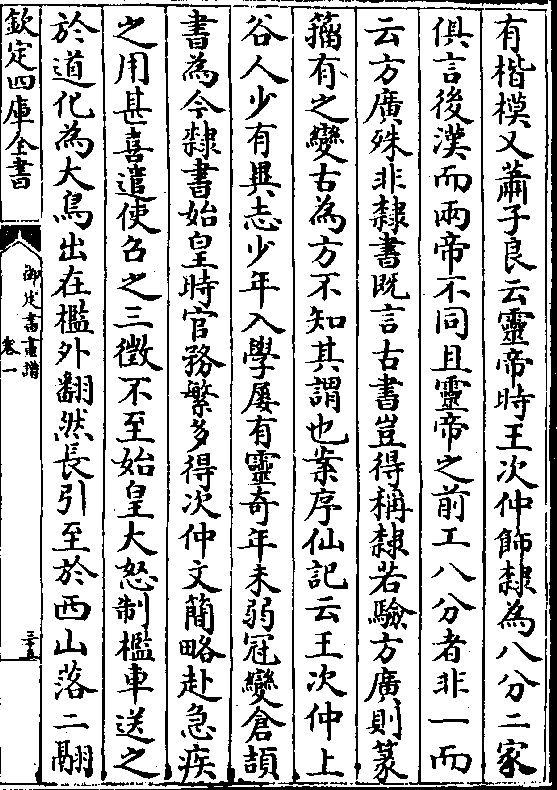 有楷模又蕭子良云靈帝時王次仲飾隸為八分二家
俱言後漢而兩帝不同且靈帝之前工八分者非一而
云方廣殊非隸書既言古書豈得稱隸若驗方廣則篆
籀有之變古為方不知其謂也案序仙記云王次仲上
谷人少有異志少年入學屢有靈奇年未弱冠變倉頡
書為今隸書始皇時官務繁多得次仲文簡略赴急疾
之用甚喜遣使召之三徵不至始皇大怒制檻車送之
於道化為大鳥出在檻外翻然長引至於西山落二翮
欽定四庫全書
御定書畫譜
卷一
三十五